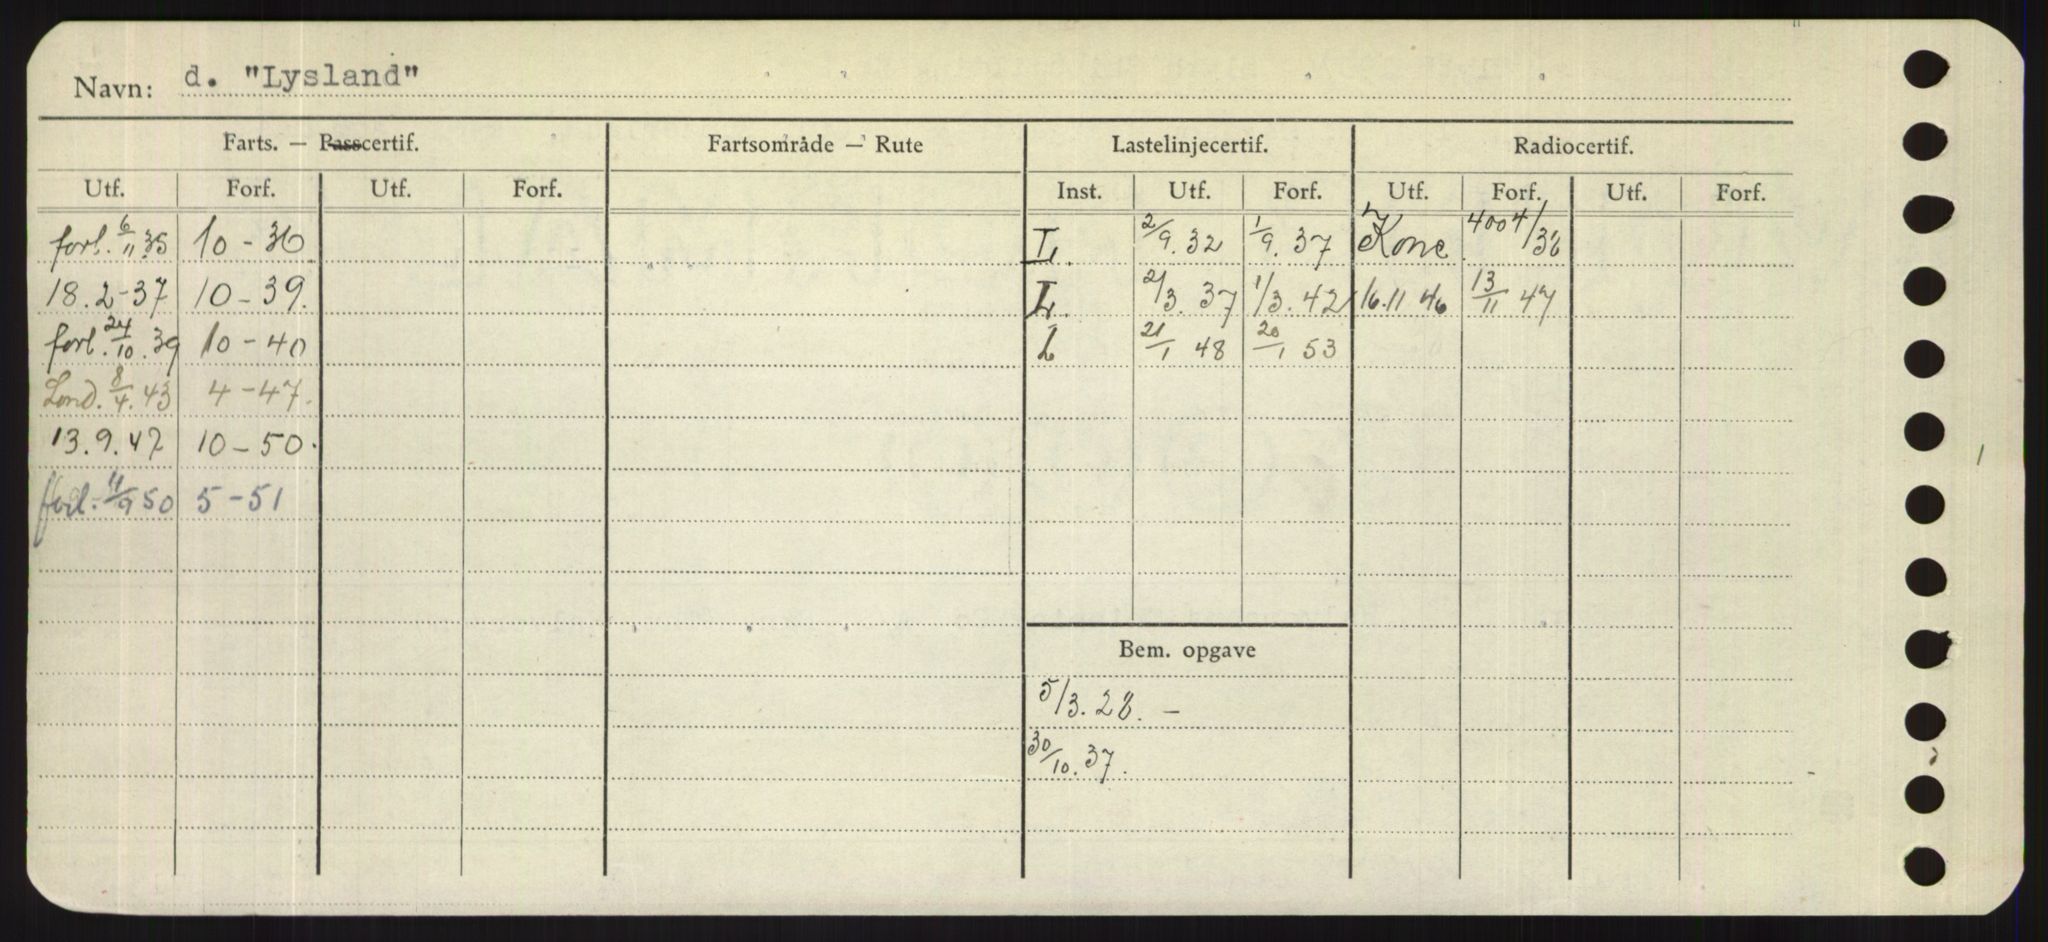 Navn: d. "Lysland"
Farts. — Passcertif. Fartsområde — Rute Lastelinjecertif. Radiocertif.
Utf. Forf. Utf. Forf. Inst. Utf. Forf. Utf. Forf. Utf. Forf.
forl. 6/11 35 10 - 36 L. 2/9. 32 1/9. 37
18. 2 - 37 10 - 39. L. 2/3. 37 1/3. 42 16. 11 46 13/11 47
forl. 24/10. 39 10 - 40 L 21/1 48 20/1 53
Lond. 8/4. 43 4 - 47.
13. 9. 47 10 - 50.
forl. 11/9 50 5 - 51
Bem. opgave
5/3. 28. —
30/10. 37.